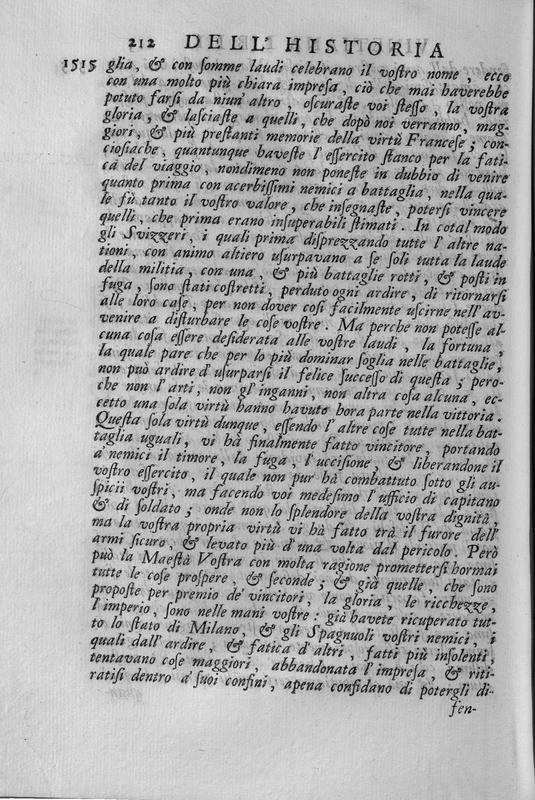 212 DELL' HISTORIA
1515 glia, & con ſomme laudi celebrano il voſtro nome, ecco
con una molto più chiara impreſa, ciò che mai haverebbe
potuto farſi da niun' altro, oſcuraſte voi ſteſſo, la voſtra
gloria, & laſciaſte a quelli, che dopò noi verranno, mag-
giori, & più preſtanti memorie della virtù Franceſe; con-
cioſiache, quantunque haveſte l' eſſercito ſtanco per la fati-
ca del viaggio, nondimeno non poneſte in dubbio di venire
quanto prima con acerbiſſimi nemici a battaglia, nella qua-
le fù tanto il voſtro valore, che inſegnaſte, poterſi vincere
quelli, che prima erano inſuperabili ſtimati. In cotal modo
gli Svizzeri, i quali prima diſprezzando tutte l' altre na-
tioni, con animo altiero uſurpavano a ſe ſoli tutta la laude
della militia, con una, & più battaglie rotti, & poſti in
fuga, ſono ſtati coſtretti, perduto ogni ardire, di ritornarſi
alle loro caſe, per non dover coſi facilmente uſcirne nell' av-
venire a diſturbare le coſe voſtre. Ma perche non poteſſe al-
cuna coſa eſſere deſiderata alle voſtre laudi, la fortuna,
la quale pare che per lo più dominar ſoglia nelle battaglie,
non può ardire d' uſurparſi il felice ſucceſſo di queſta; pero-
che non l' arti, non gl' inganni, non altra coſa alcuna, ec-
cetto una ſola virtù hanno havuto hora parte nella vittoria.
Queſta ſola virtù dunque, eſſendo l' altre coſe tutte nella bat-
taglia uguali, vi hà finalmente fatto vincitore, portando
a nemici il timore, la fuga, l' ucciſione, & liberandone il
voſtro eſſercito, il quale non pur hà combattuto ſotto gli au-
ſpicii voſtri, ma facendo voi medeſimo l' ufficio di capitano
& di ſoldato; onde non lo ſplendore della voſtra dignità,
ma la voſtra propria virtù vi hà fatto trà il furore dell'
armi ſicuro, & levato più d' una volta dal pericolo. Però
può la Maeſtà Voſtra con molta ragione prometterſi hormai
tutte le coſe proſpere, & ſeconde; & già quelle, che ſono
propoſte per premio de' vincitori, la gloria, le ricchezze,
l' imperio, ſono nelle mani voſtre: già havete ricuperato tut-
to lo ſtato di Milano, & gli Spagnuoli voſtri nemici, i
quali dall' ardire, & fatica d' altri, fatti più inſolenti,
tentavano coſe maggiori, abbandonata l' impreſa, & riti-
ratiſi dentro a' ſuoi confini, apena confidano di potergli di-
fen-